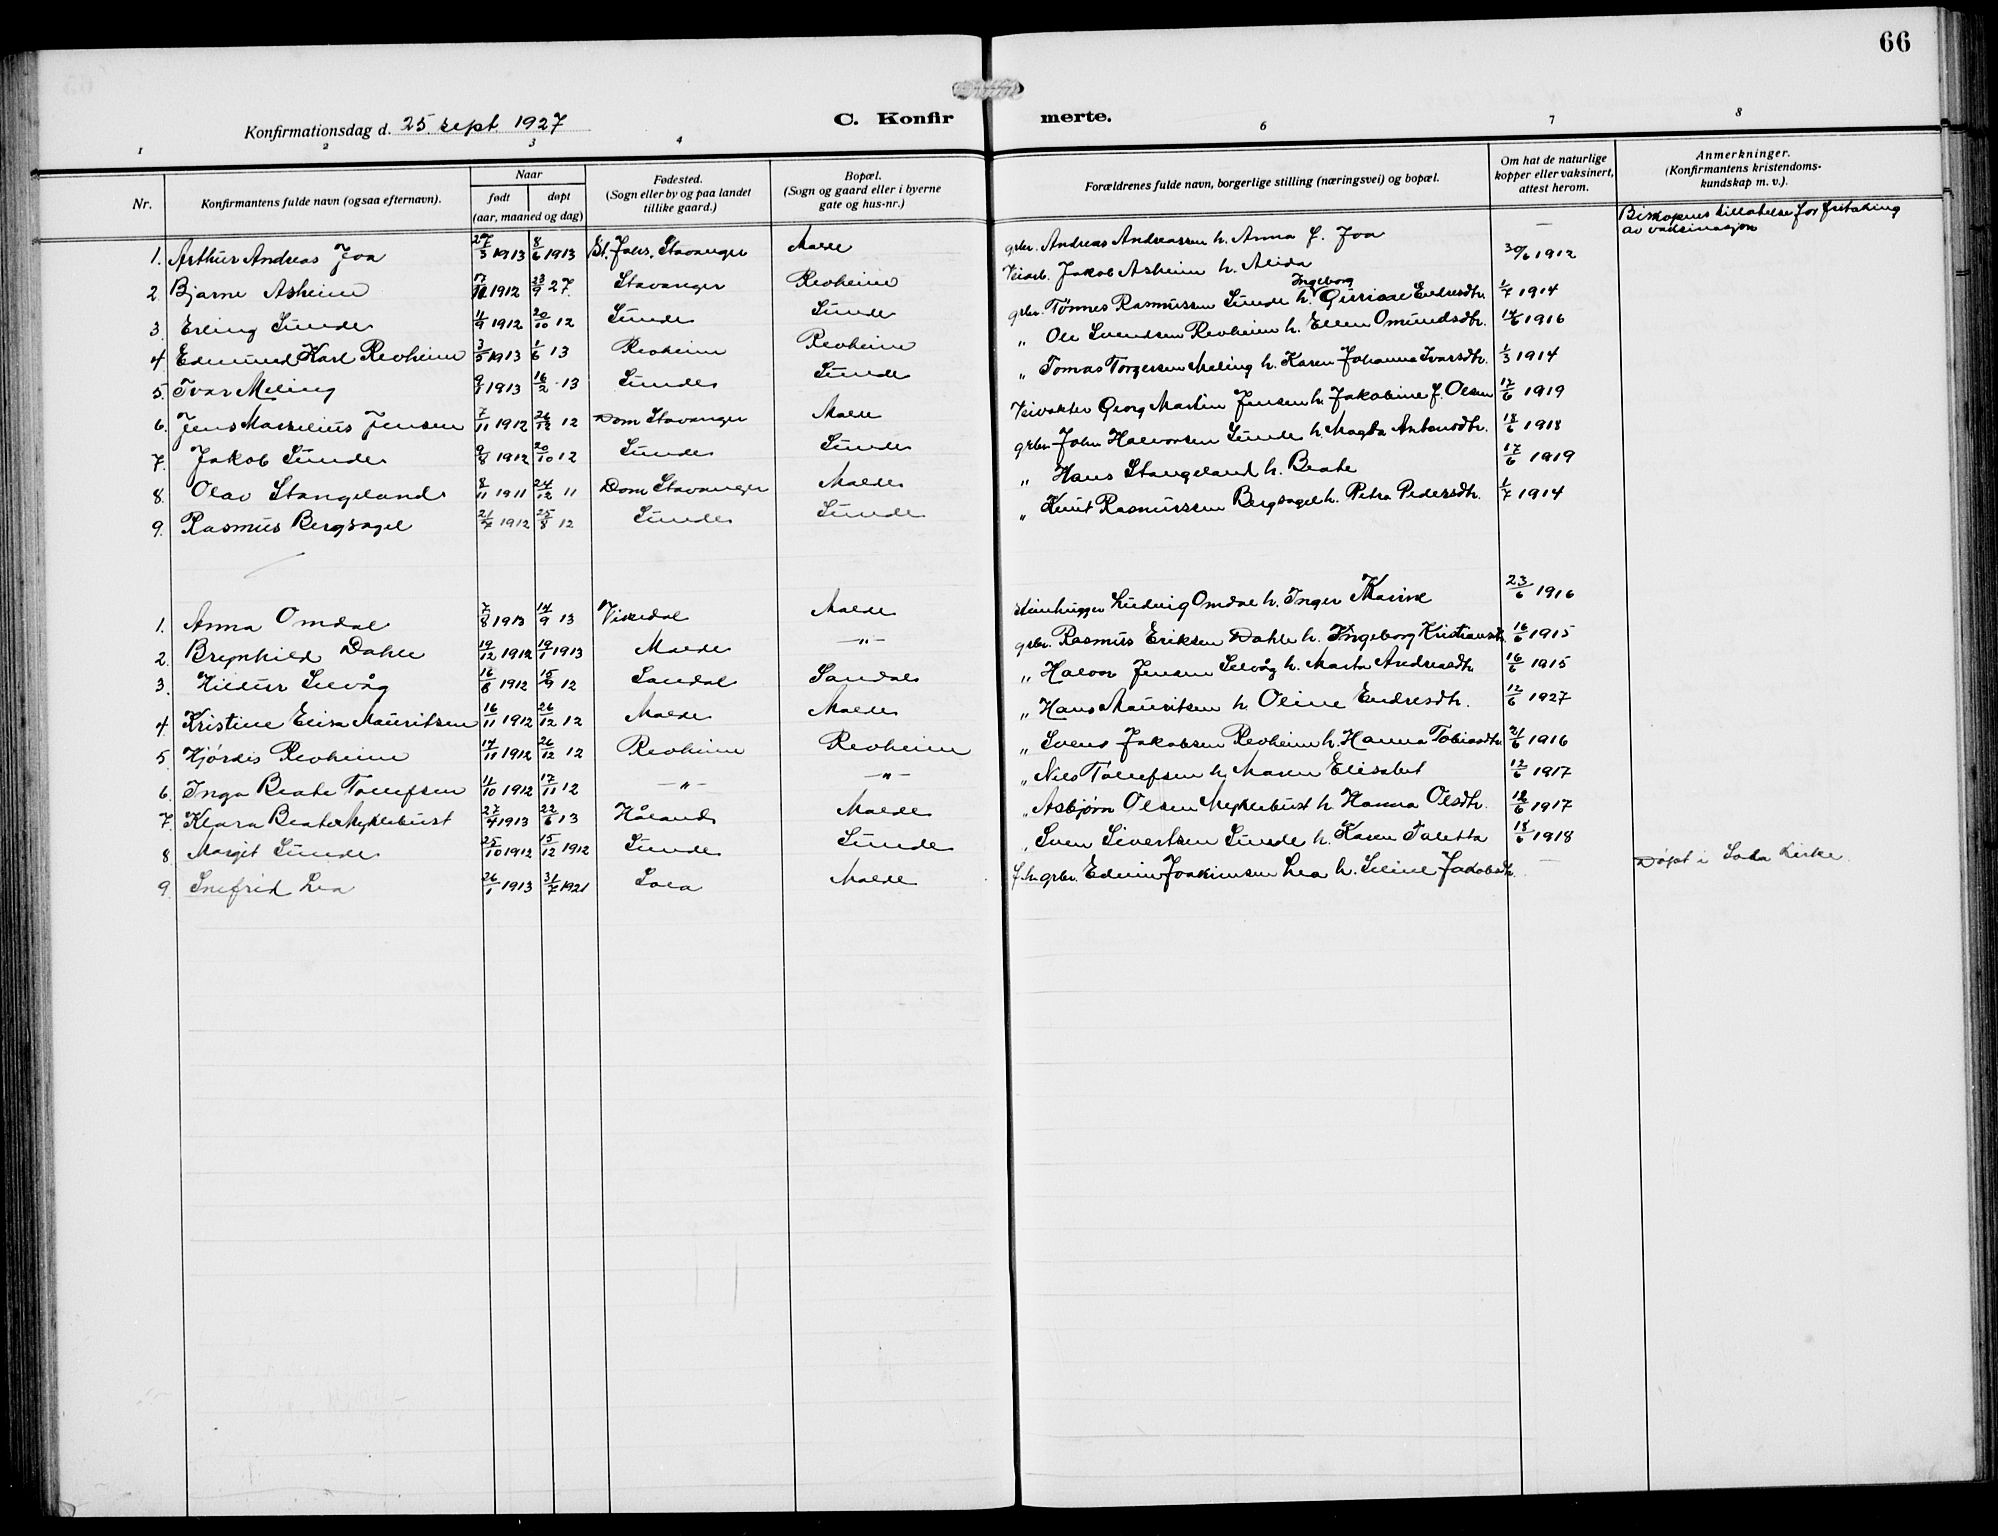 66
Konfirmationsdag d. 25. sept 1927
C. Konfirmerte.
1 2 3 4 6 7 8
Nr. Konfirmantens fulde navn (ogsaa efternavn). Naar født døpt (aar, maaned og dag) Fødested. (Sogn eller by og paa landet tillike gaard.) Bopæl. (Sogn og gaard eller i byerne gate og hus-nr.) Forældrenes fulde navn, borgerlige stilling (næringsvei) og bopæl. Om hat de naturlige kopper eller vaksinert, attest herom. Anmerkninger. (Konfirmantens kristendomskundskap m. v.).
1. Arthur Andreas Joa 27/3 1913 8/6 1913 St. Johs. Stavanger Malde grbr. Andreas Andreassen h. Anna f. Joa — Biskopens tillatelse for fritaking av vaksinasjon
2. Bjarne Asheim 1912 23/9 27. Stavanger Revheim Veiarb. Jakob Asheim h. Alida 30/6 1912
3. Erling Sunde 11/9 1912 20/10 12 Sunde Sunde grbr. Tønnes Rasmussen Sunde h. Ingeborg Endresdtr. 1/7 1914
4 Edmund Karl Revheim 3/5 1913 1/6 13 Revheim Revheim " Ole Svendsen Revheim h. Ellen Omundsdtr. 14/6 1916
5. Ivar Meling 9/1 1913 16/2 - 13 Sunde Sunde " Tomas Torgersen Meling h. Karen Johanna Ivarsdtr. 1/3 1914
6. Jens Marselius Jensen 7/11 1912 26/12 12 Dom Stavanger Malde Veivokter Georg Martin Jensen h. Jakobine f. Olsen 17/6 1919
7. Jakob Sunde 9/8 1912 20/10 12 Sunde Sunde grbr. John Halvorsen Sunde h. Magta Antonsdtr. 18/6 1918
8. Olav Stangeland 8/11 1911 24/12 11 Dom Stavanger Malde " Hans Stangeland h. Beate 17/6 1919
9. Rasmus Bergsagel 21/7 1912 25/8 12 Sunde Sunde " Knut Rasmussen Bergsagel h. Petra Pedersdtr. 1/7 1914
1. Anna Omdal 7/8 1913 14/9 13 Vikedal Malde Stenhugger Ludvig Omdal h. Inger Marine 23/6 1916
2. Brynhild Dahle 19/12 1912 19/1 1913 Malde -"- grbr. Rasmus Eriksen Dahle h. Ingeborg Kristiansdtr. 16/6 1915
3. Hildur Selvåg 16/8 1912 15/9 12 Sandal Sandal " Halvor Jensen Selvåg h. Marta Andreasdtr. 16/6 1915
4. Kristine Elisa Mauritsen 16/11 1912 26/12 12 Malde Malde " Hans Mauritsen h. Oline Endresdtr. 12/6 1927
5. Hjørdis Revheim 14/11 1912 26/12 12 Revheim Revheim " Svens Jakobsen Revheim h. Hanna Tobiasdtr. 21/6 1916
6. Inga Beate Tollefsen 11/10 1912 17/11 12 -"- -"- " Nils Tollefsen h. Maren Elisabet 12/6 1917
7. Klara Beate Myklebust 27/4 1913 22/6 13 Håland Malde " Asbjørn Olsen Myklebust h. Hanna Olsdtr. 12/6 1917
8 Margit Sunde 25/10 1912 15/12 1912 Sunde Sunde " Sven Sivertsen Sunde h. Karen Taletta 18/6 1918
9. Snefrid Lea 26/1 1913 31/7 1921 Sola Malde f.h. grbr. Edvin Joakimsen Lea h. Seline Jakobsdtr. — Døpt i Sola kirke.